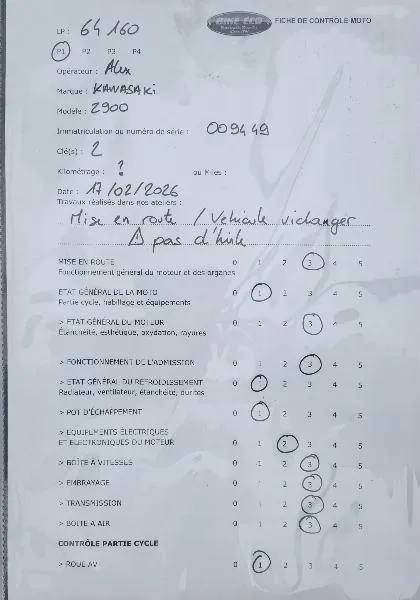 BIKE-ECO
FICHE DE CONTRÔLE MOTO
LP : 64 160
P1 P2 P3 P4
Opérateur : Alex
Marque : KAWASAKI
Modèle : Z900
Immatriculation ou numéro de série : 009449
Clé(s) : 2
Kilométrage : ? ou Miles :
Date : 17/02/2026
Travaux réalisés dans nos ateliers :
Mise en route / Vehicule vidanger
⚠ pas d'huile
MISE EN ROUTE 0 1 2 3 4 5
Fonctionnement général du moteur et des organes
ETAT GÉNÉRAL DE LA MOTO 0 1 2 3 4 5
Partie cycle, habillage et équipements
> ETAT GÉNÉRAL DU MOTEUR 0 1 2 3 4 5
Étanchéité, esthétique, oxydation, rayures
> FONCTIONNEMENT DE L'ADMISSION 0 1 2 3 4 5
> ETAT GÉNÉRAL DU REFROIDISSEMENT 0 1 2 3 4 5
Radiateur, ventilateur, étanchéité, durites
> POT D'ÉCHAPPEMENT 0 1 2 3 4 5
> EQUIPEMENTS ÉLECTRIQUES
ET ELECTRONIQUES DU MOTEUR 0 1 2 3 4 5
> BOÎTE À VITESSES 0 1 2 3 4 5
> EMBRAYAGE 0 1 2 3 4 5
> TRANSMISSION 0 1 2 3 4 5
> BOITE A AIR 0 1 2 3 4 5
CONTRÔLE PARTIE CYCLE
> ROUE AV 0 1 2 3 4 5